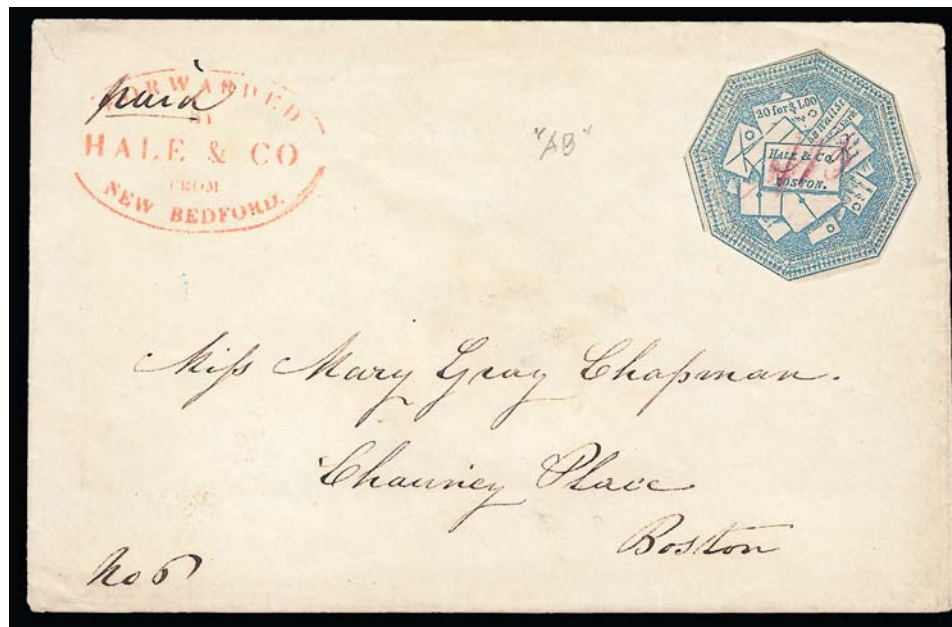 paid
FORWARDED
BY
HALE & CO
FROM
NEW BEDFORD.
"AB"
20 for $1.00
HALE & Co.
BOSTON.
Miss Mary Gray Chapman.
Chauncy Place
Boston
No 6